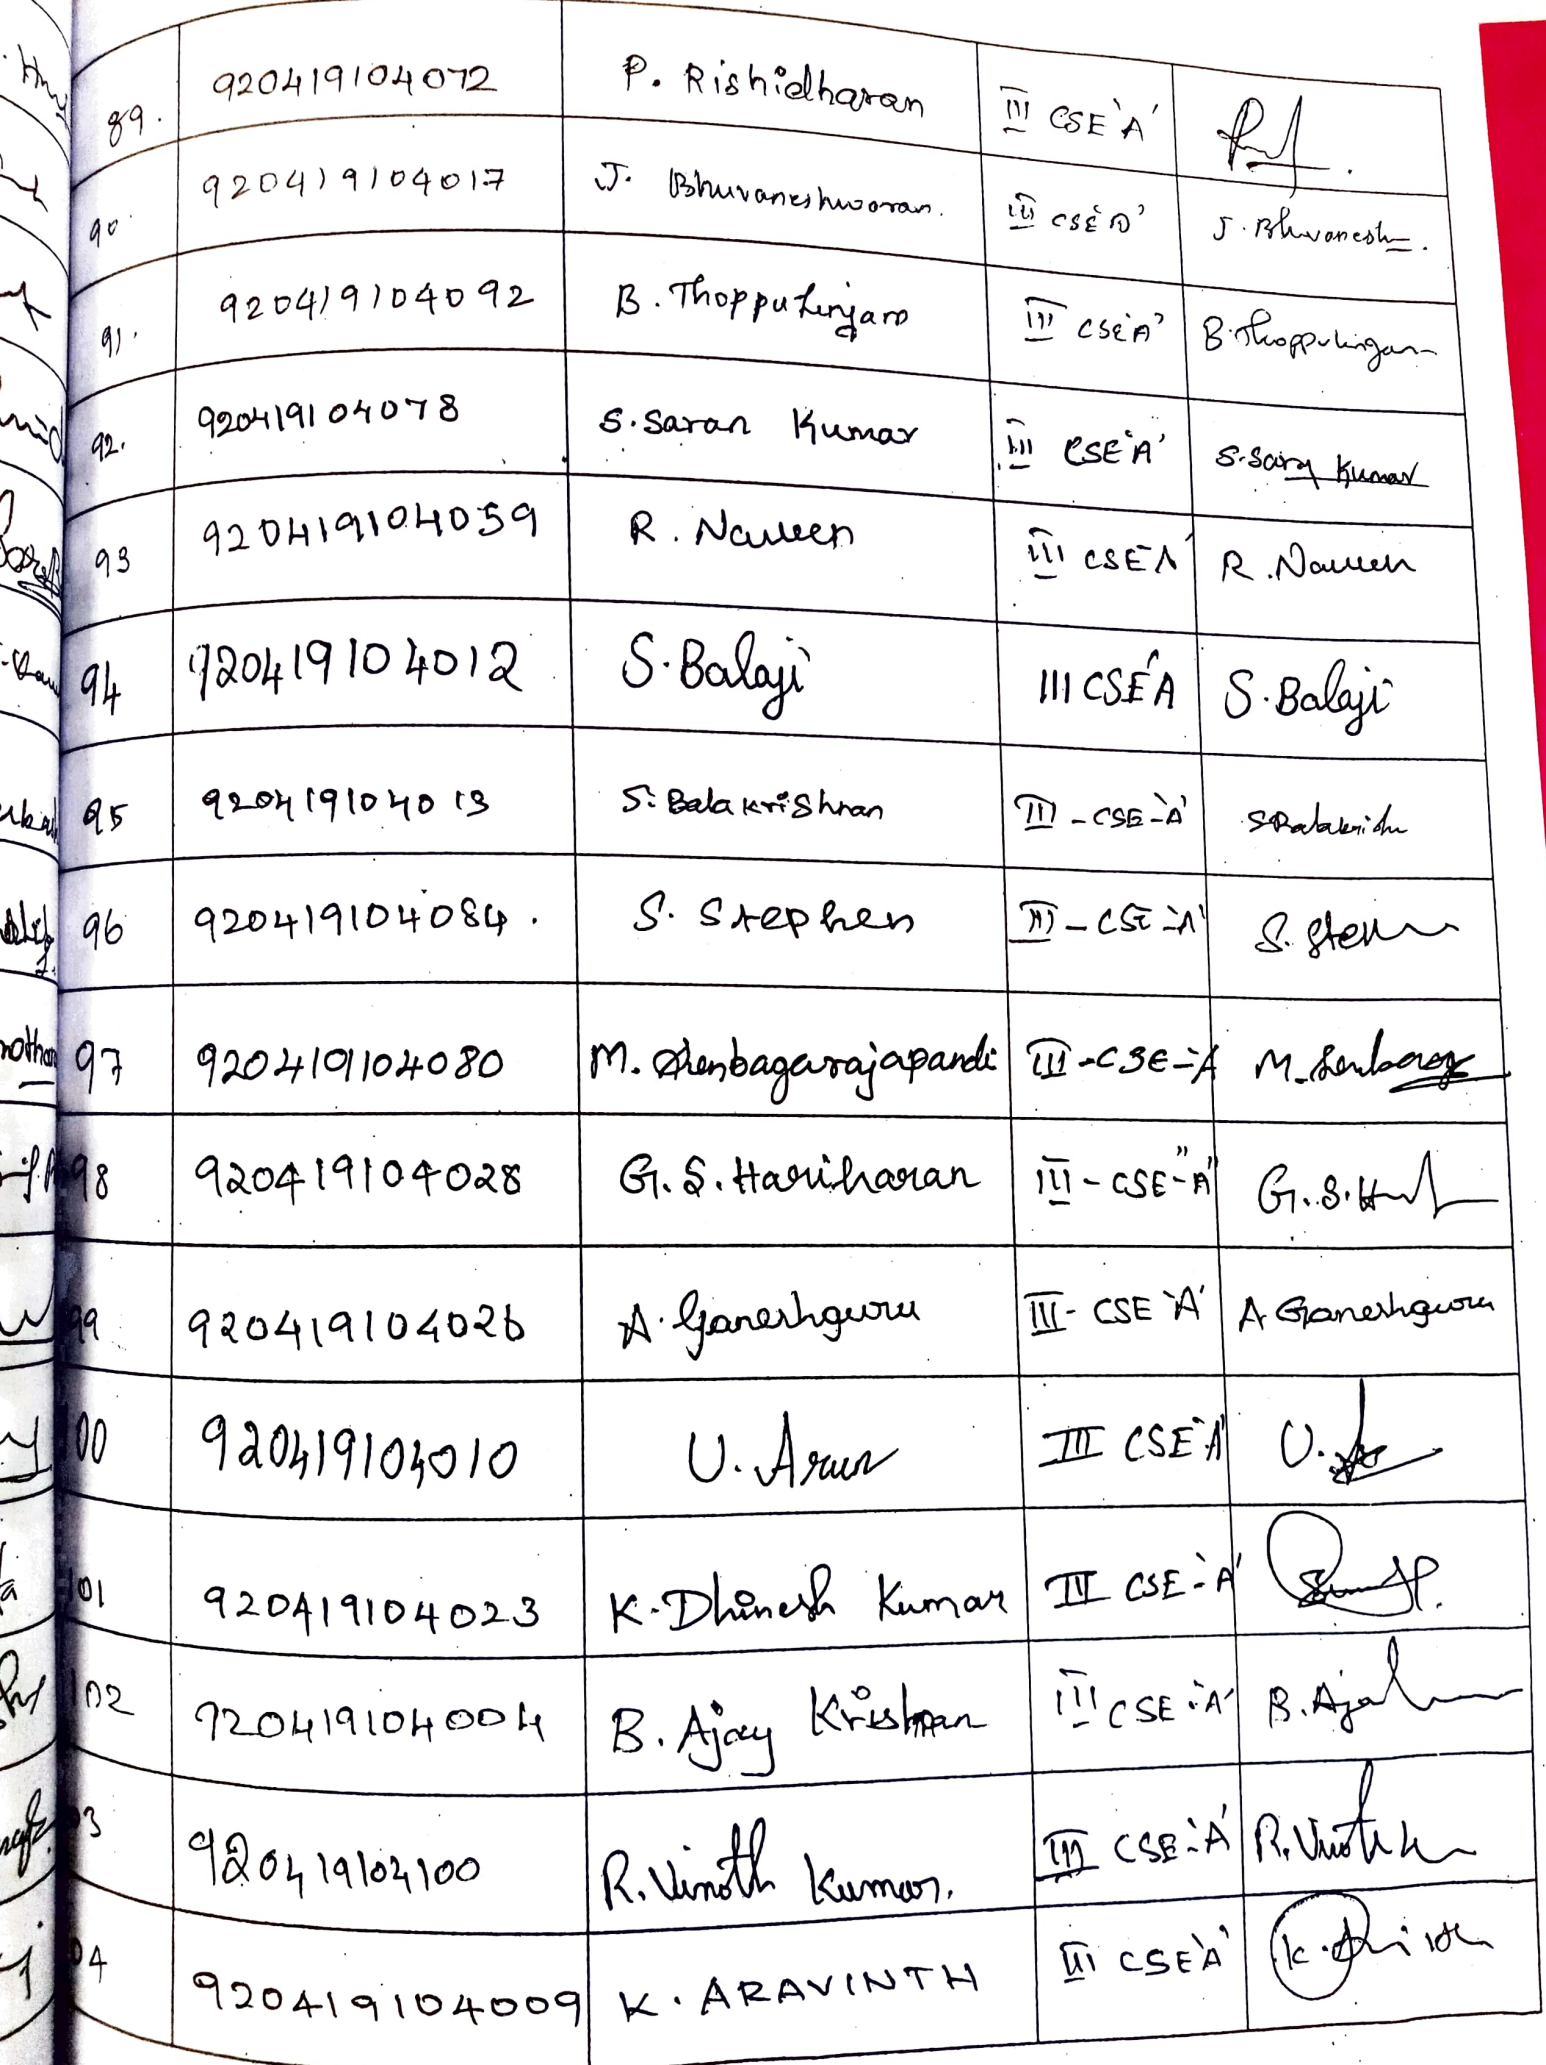 89. 920419104072 P. Rishidharan III CSE 'A'
90. 920419104017 J. Bhuvaneshwaran. III CSE 'A' J. Bhuvanesh
91. 920419104092 B. Thoppulingam III CSE 'A' B. Thoppulingam
92. 920419104078 S. Saran Kumar III CSE 'A' S. Saran Kumar
93 920419104059 R. Naveen III CSE 'A' R. Naveen
94 920419104012 S. Balaji III CSE 'A' S. Balaji
95 920419104013 S. Balakrishnan III - CSE - 'A' S Balakrish
96 920419104084. S. Stephen III - CSE - 'A' S. Sten
97 920419104080 M. Shenbagarajapandi III - CSE - A M. Senbag
98 920419104028 G. S. Hariharan III - CSE - "A" G. S. H
99 920419104026 A. Ganeshguru III - CSE 'A' A Ganeshguru
100 920419104010 U. Arun III CSE 'A' U.
101 920419104023 K. Dhinesh Kumar III CSE - 'A'
102 920419104004 B. Ajay Krishnan III CSE - 'A' B. Ajay
03 920419104100 R. Vinoth Kumar. III CSE - 'A' R. Vinoth K
04 920419104009 K. ARAVINTH III CSE 'A' K.